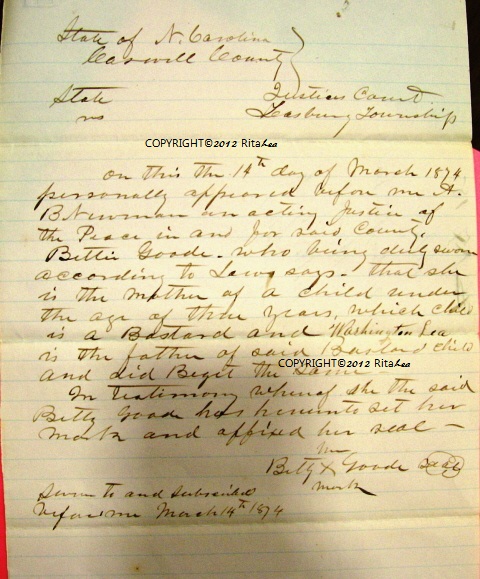 State of N. Carolina
Caswell County
State Justices Court
vs Leasburg Township
COPYRIGHT©2012 RitaLea
on this the 14th day of March 1874
personally appeared before me A.
B Newman an acting Justice of
the Peace in and for said County,
Bettie Goode. who being duly sworn
according to Laws says. that she
is the mother of a child under
the age of three years, which child
is a Bastard and Washington Lea
is the father of said Bastard child
COPYRIGHT©2012 RitaLea
and did Beget the Same
In testimony whereof she the said
Betty Goode has hereunto set her
mark and affixed her seal —
her
Betty X Goode Seal
mark
Sworn to and subscribed
before me March 14th 1874